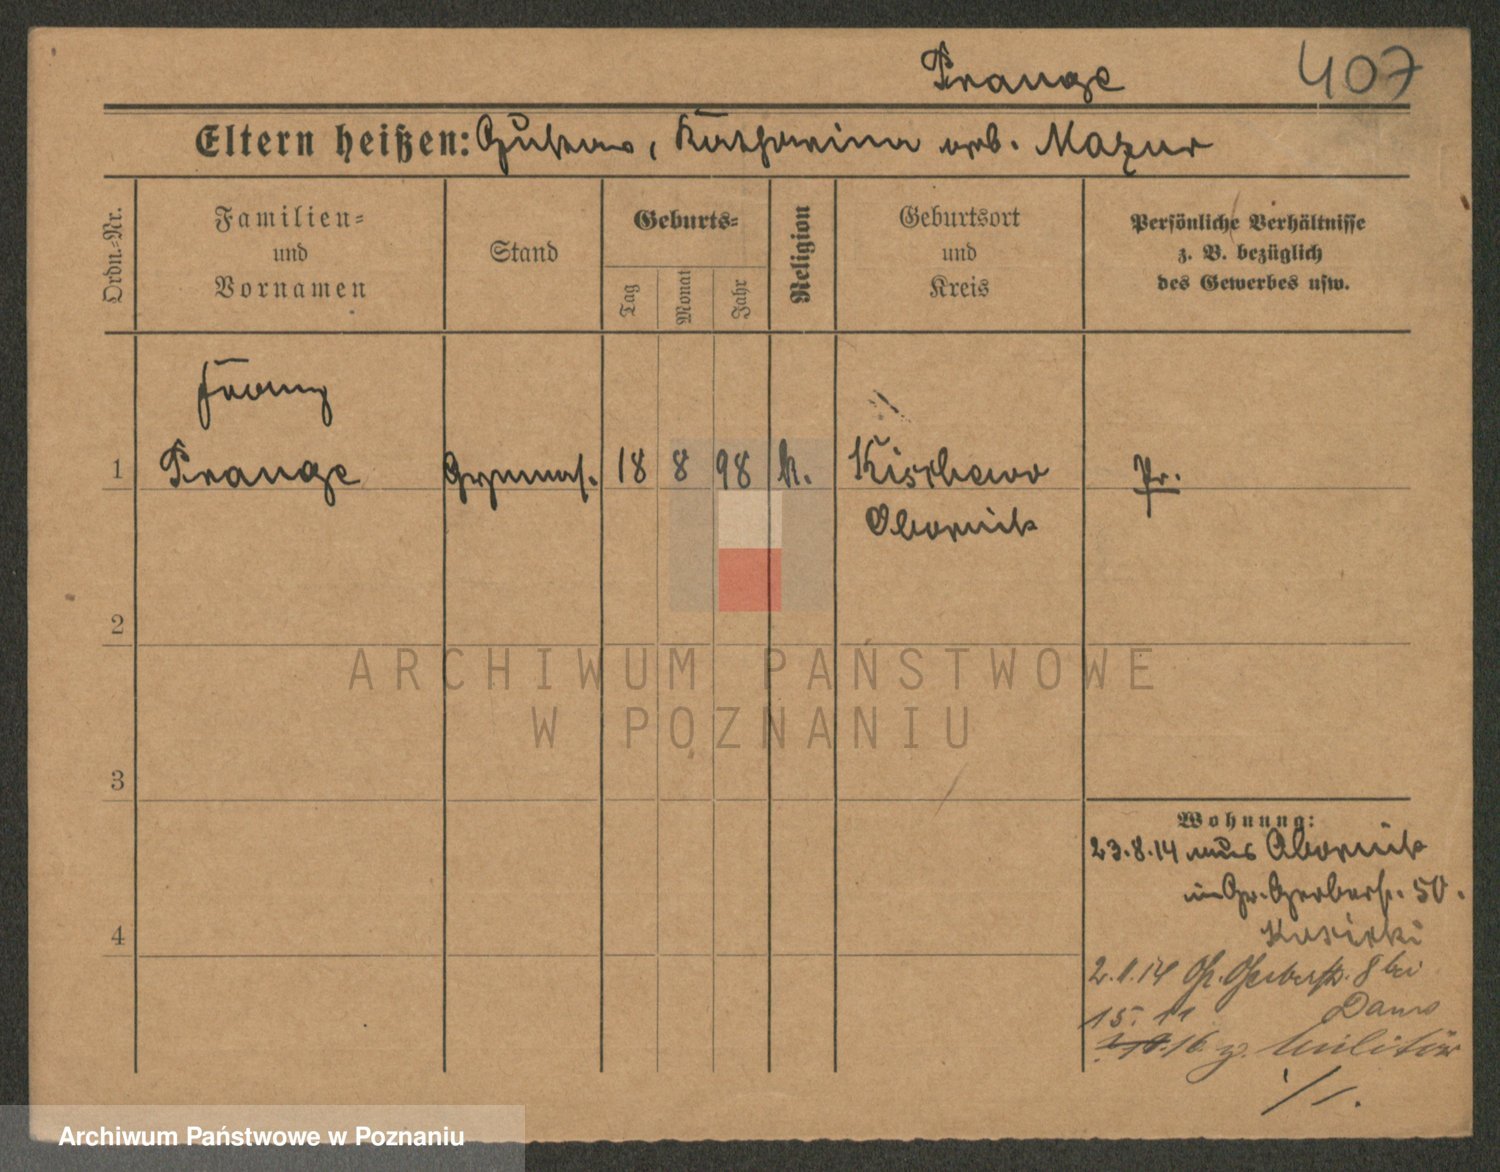 Prange 407
Eltern heißen: Gustav, Katharina geb. Mazur
Ordn.-Nr.
Familien-
und
Vornamen
Stand
Geburts-
Tag
Monat
Jahr
Religion
Geburtsort
und
Kreis
Persönliche Verhältnisse
z. B. bezüglich
des Gewerbes usw.
Franz
1 Prange Gymnas. 18 8 98 k. Kischewo Pr.
Obornik
2
ARCHIWUM PAŃSTWOWE
W POZNANIU
3
Wohnung:
23.8.14 aus Obornik
in Gr. Gerberstr. 50.
4
Kusinski
2.1.14 Gr. Gerberstr. 8 bei
15. 11
16 z. Militär
Archiwum Państwowe w Poznaniu